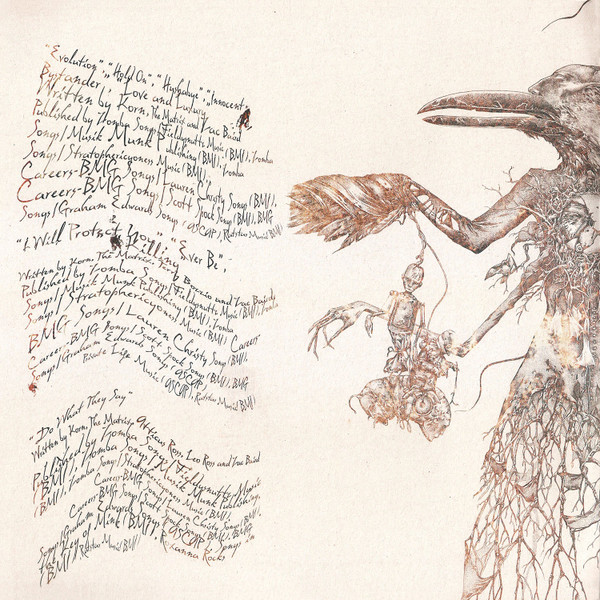 "Evolution", "Hold On", "Hushabye", "Innocent
Bystander", Love and Luxury
Written by Korn, The Matrix and Zac Baird
Published by Zomba Songs/Fieldynutts Music (BMI), Zomba
Songs/Musik Munk Publishing (BMI), Zomba
Songs/Stratosphericyoness Music (BMI),
Careers-BMG Songs/Lauren Christy Songs (BMI),
Careers-BMG Songs/Scott Spock Songs (BMI), BMG
Songs/Graham Edwards Songs (ASCAP), Ratstar Music (BMI)
"I Will Protect You", "Ever Be",
Killing
Written by Korn, The Matrix, Terry Bozzio and Zac Baird
Published by Zomba Songs/Fieldynutts Music (BMI), Zomba
Songs/Musik Munk Publishing (BMI), Zomba
Songs/Stratosphericyoness Music (BMI), Career
BMG Songs/Lauren Christy Songs (BMI),
Career-BMG Songs/Scott Spock Songs (BMI), BMG
Songs/Graham Edwards Songs (ASCAP),
Private Life Music (ASCAP), Ratstar Music (BMI)
"Do What They Say"
Written by Korn, The Matrix, Atticus Ross, Leo Ross and Zac Baird
Published by Zomba Songs/Fieldynutts Music
(BMI), Zomba Songs/Musik Munk Publishing
(BMI), Zomba Songs/Stratosphericyoness Music (BMI),
Career-BMG Songs/Lauren Christy Songs (BMI),
Career-BMG Songs/Scott Spock Songs (BMI),
Songs/Graham Edwards Songs (ASCAP), Songs in
the Key of Mink (BMI), Rosanna Rocks
(BMI), Ratstar Music (BMI)